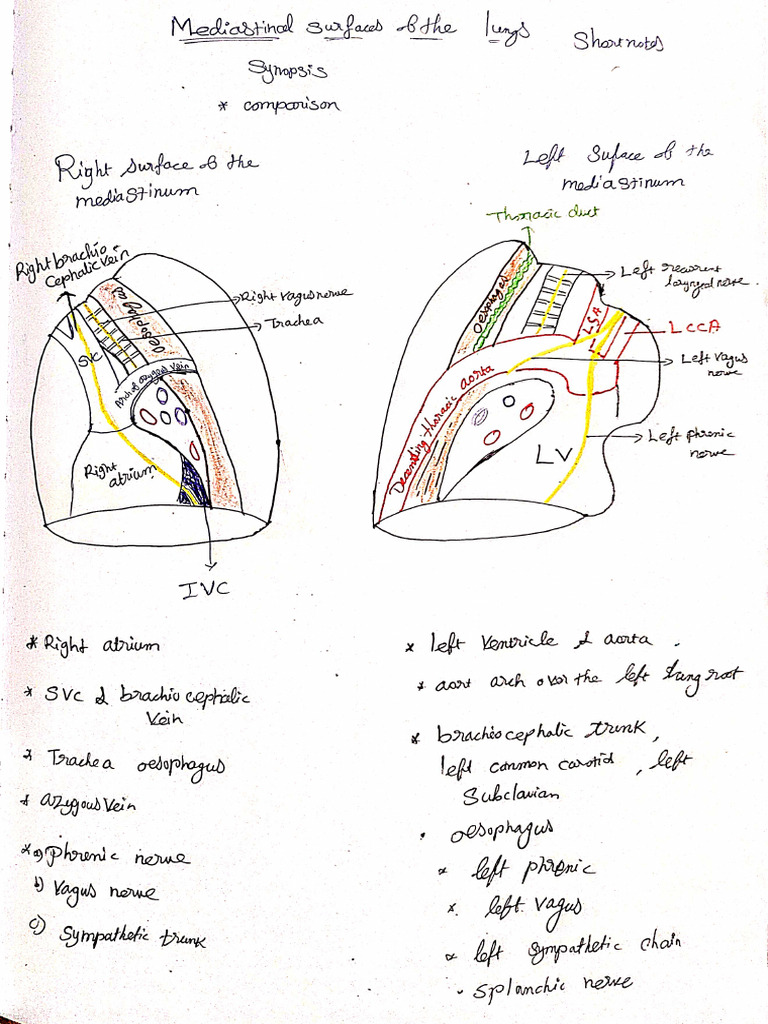 Mediastinal surfaces of the lungs
Short notes
Synopsis
* comparison
Right surface of the
mediastinum
Left Suface of the
mediastinum
Thoracic duct
Right brachio
Cephalic vein
Oesophagus
Right vagus nerve
Trachea
SVC
Arch of azygous vein
Right
atrium
IVC
Oesophagus
Left recurrent
laryngeal nerve
LSA
LCCA
Left vagus
nerve
Decending thoracic aorta
LV
Left phrenic
nerve
* Right atrium
* SVC & brachio cephalic
vein
* Trachea oesophagus
* azygous vein
* a) Phrenic nerve
b) Vagus nerve
c) Sympathetic trunk
* left ventricle & aorta
* aort arch over the left lung root
* brachiocephalic trunk,
left common carotid, left
Subclavian
• oesophagus
* left phrenic
* left vagus
* left sympathetic chain
• splanchic nerve